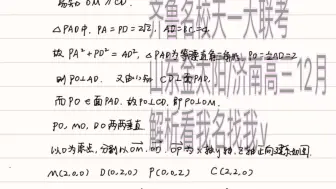 易知 OM // CD.
△PAD中, PA=PD=2√2, AD=BC=4.
故 PA²+PD²=AD², △PAD为等腰直角三角形, PO=½AD=2
则 PO⊥AD. 又由(1)知 CD⊥面PAD.
而 PO⊂面PAD. 故 PO⊥CD, 即 PO⊥OM.
PO, MO, DO 两两垂直
以O为原点, 分别以 OM, OD, OP 为x轴y轴z轴正向建系如图.
M(2,0,0) D(0,2,0) P(0,0,2) C(2,2,0)
齐鲁名校天一大联考
山东泰东阳济南高三12月
解析看我名找我y